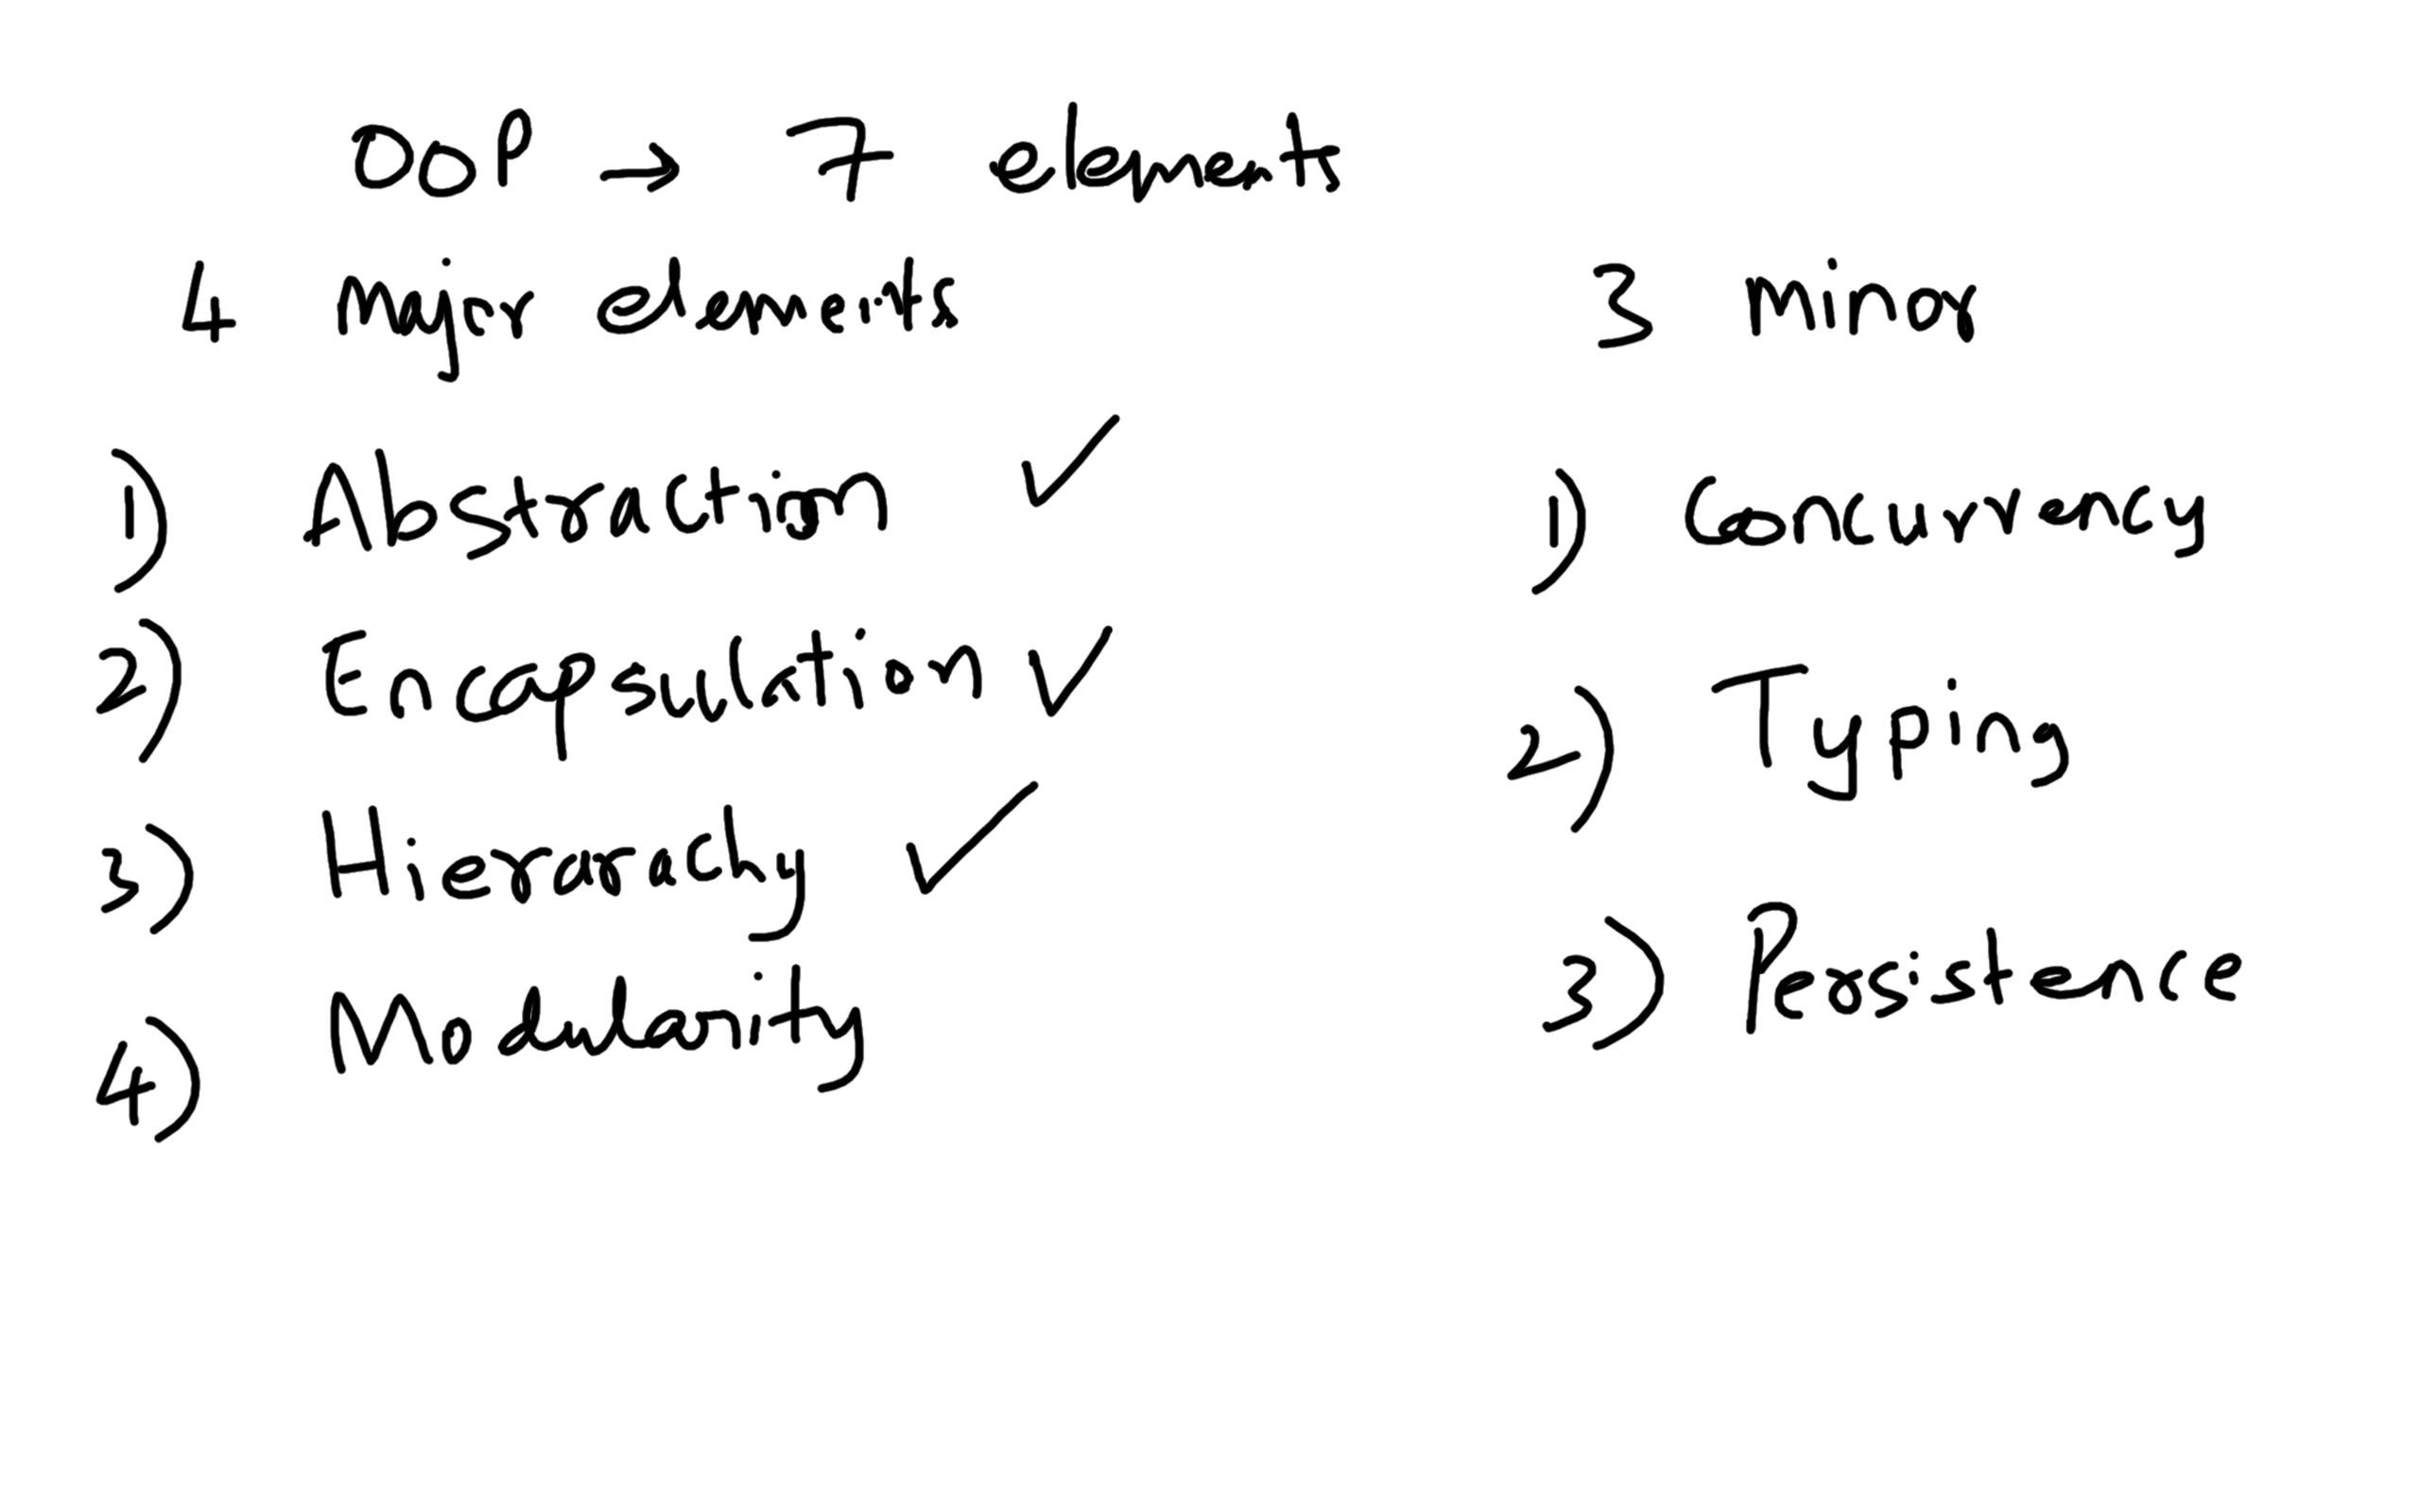 OOP → 7 elements
4 Major elements
3 Minor
1) Abstraction ✓
2) Encapsulation ✓
3) Hierarachy ✓
4) Modularity
1) Concurrency
2) Typing
3) Persistence